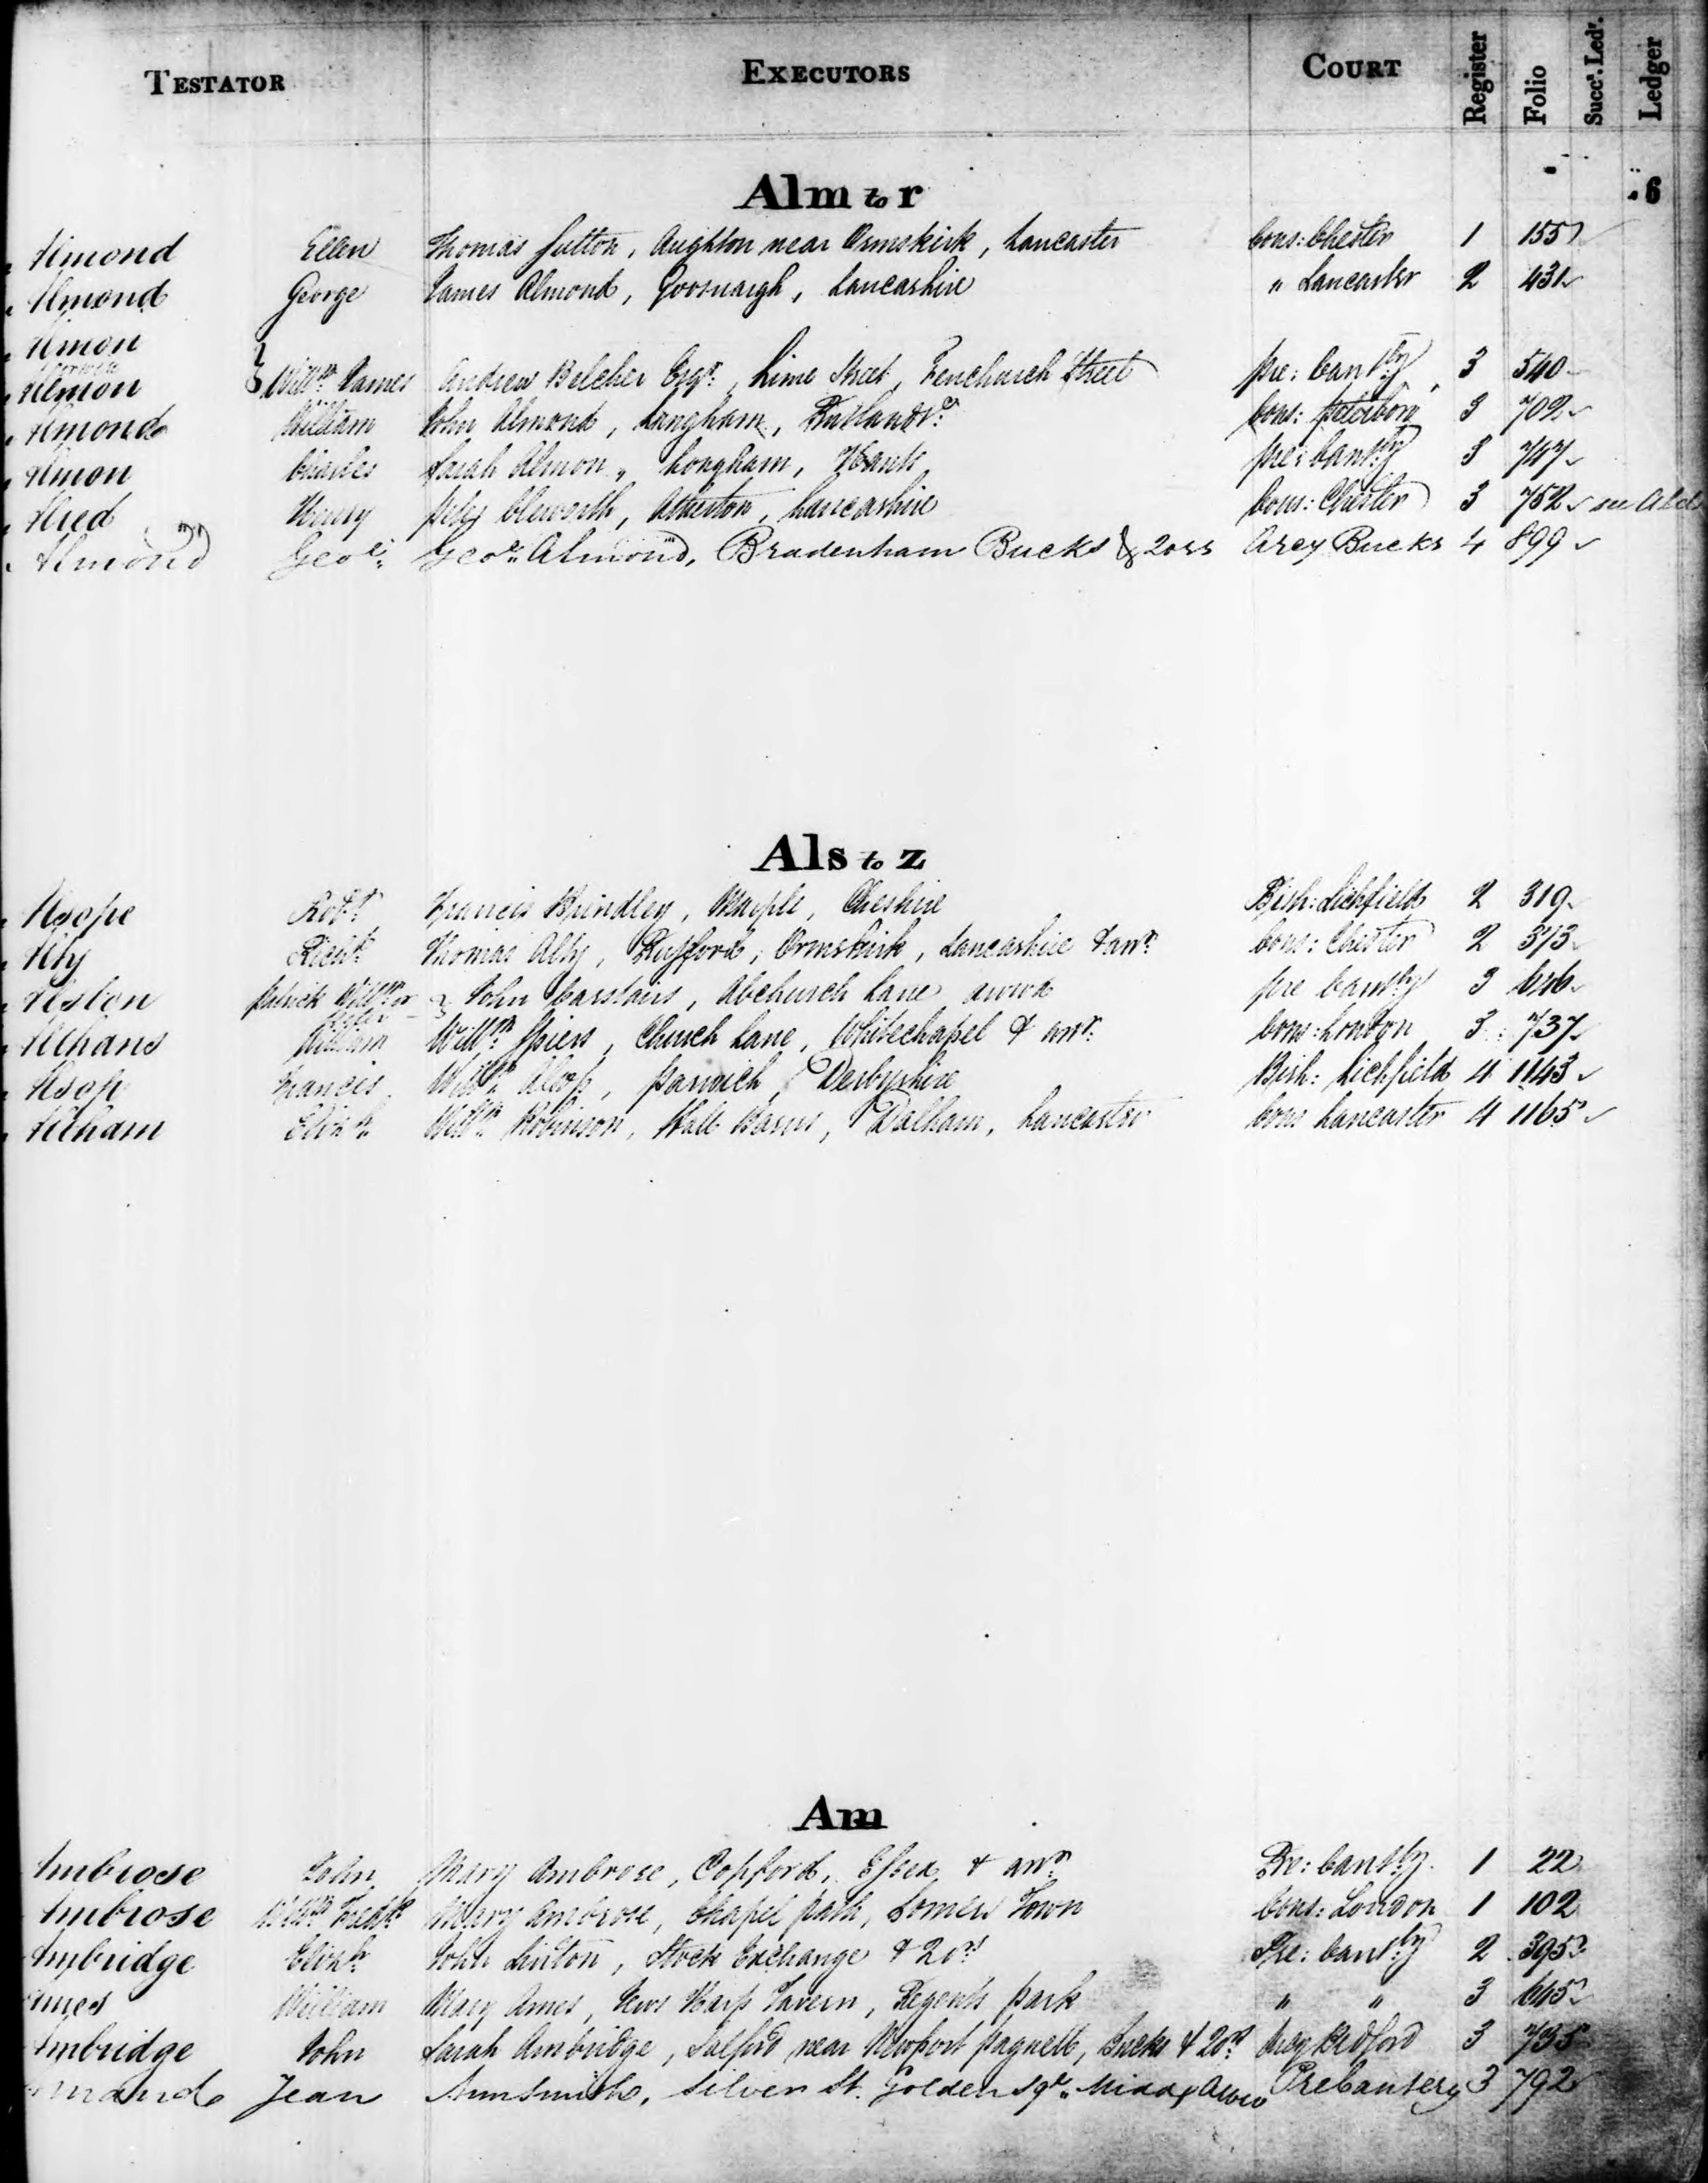 TESTATOR EXECUTORS COURT Register Folio Succn. Ledr. Ledger
6
Alm to r
Almond Ellen Thomas Sutton, Aughton near Ormskirk, Lancaster Cons: Chester 1 155
Almond George James Almond, Goosnargh, Lancashire " Lancaster 2 431
Almon
Almon Willm James Andrew Belcher Esqr., Lime Street, Fenchurch Street Pre: Cantby 3 540
Almond William John Almond, Langham, Rutland Cons: Peterboro' 3 702
Almon Charles Sarah Almon, Longham, Hants Pre: Cantby 3 747
Alred Henry Peter Cleworth, Atherton, Lancashire Cons: Chester 3 752 see Ald
Almond Geo. Geo. Almond, Bradenham Bucks & 2 ors Arcy Bucks 4 899
Als to z
Alsope Robt. Francis Brindley, Marple, Cheshire Bish: Lichfield 2 319
Alty Richd. Thomas Alty, Rufford, Ormskirk, Lancashire & anr. Cons: Chester 2 373
Alston Patrick Willm or John Carstairs, Abchurch Lane Pre Cantby 3 646
Althans William Willm. Spiers, Church Lane, Whitechapel & anr. Cons: London 3 737
Alsop Francis Willm. Alsop, Parwich, Derbyshire Bish: Lichfield 4 1143
Altham Elizth. Willm. Robinson, Hall Barns, Dalham, Lancaster Cons Lancaster 4 1165
Am
Ambrose John Mary Ambrose, Copford, Essex & anr. Pre: Cantby. 1 22
Ambrose Willm Fredk. Mary Ambrose, Chapel Path, Somers Town Cons: London 1 102
Ambridge Elizh. John Linton, Stock Exchange & 2 ors Pre: Cantby 2 395
Ames William Mary Ames, News Harp Tavern, Regents Park " " 3 645
Ambridge John Sarah Ambridge, Salford near Newport Pagnell, Bucks & 2 ors. Arcy Bedford 3 735
Amand Jean Ann Smith, Silver St. Golden Sqr. Middx Precantery 3 792